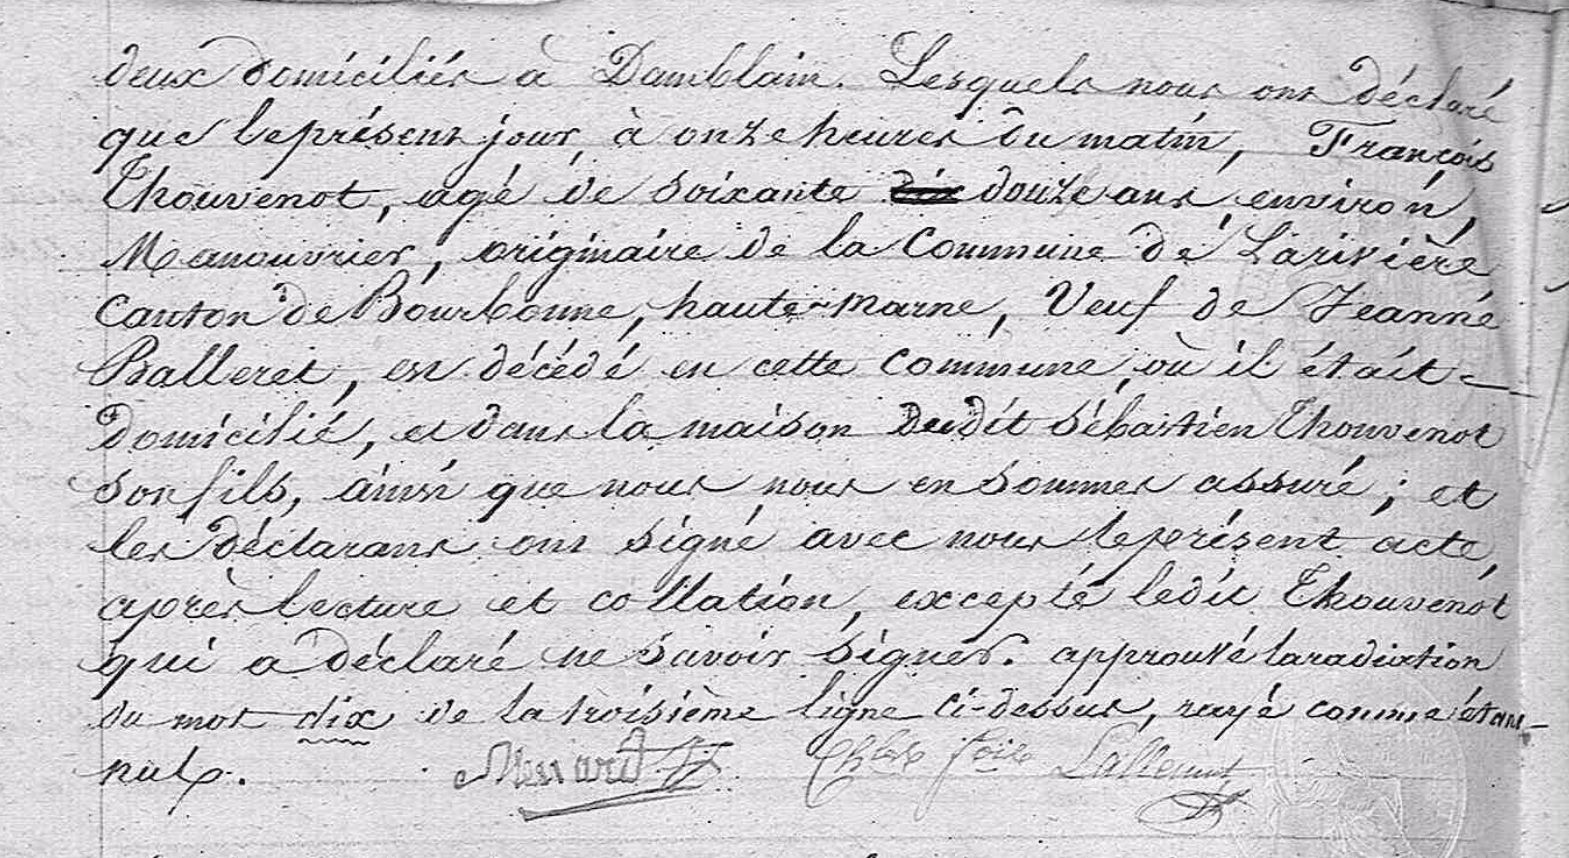 deux domiciliés à Damblain. Lesquels nous ont déclaré
que le présent jour, à onze heures du matin, François
Thouvenot, agé de soixante dix douze ans environ,
Manouvrier, originaire de la Commune de Larivière
Canton de Bourbonne, haute-marne, Veuf de Jeanne
Balleret, est décédé en cette commune, où il était
Domicilié, et dans la maison Dudit Sébastien Thouvenot
son fils, ainsi que nous nous en sommes assuré; et
les déclarans ont signé avec nous le présent acte,
après lecture et collation, excepté ledit Thouvenot
qui a déclaré ne savoir signer. approuvé la radiation
du mot dix de la troisième ligne ci-dessus, rayé comme étant
nul.
Lallemant